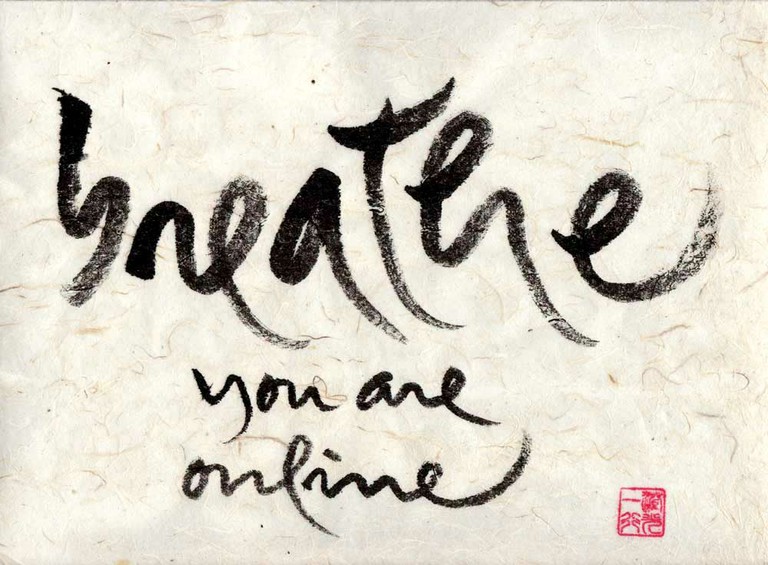 breathe
you are
online
一行